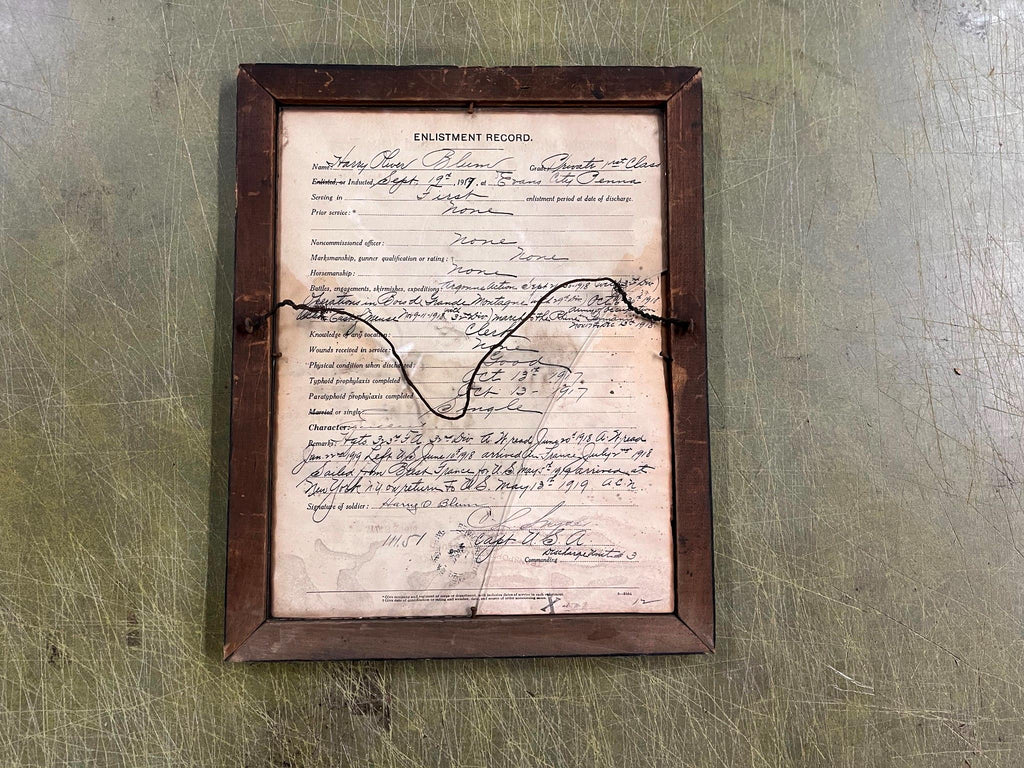 ENLISTMENT RECORD.
Name: Harry Oliver Blum Grade: Private 1st Class
Enlisted, or Inducted, Sept. 19th, 1917, at Evans City Penna
Serving in First enlistment period at date of discharge.
Prior service: * None
Noncommissioned officer: None
Marksmanship, gunner qualification or rating: None
Horsemanship: None
Battles, engagements, skirmishes, expeditions: Argonne Action Sept 1918
Operations in Bois de Grande Montagne Oct 1918
East of Meuse Nov 9-11-1918 March to the Rhine
Knowledge of any vocation: Clerk
Wounds received in service: None
Physical condition when discharged: Good
Typhoid prophylaxis completed Oct. 13th 1917
Paratyphoid prophylaxis completed Oct 13 - 1917
Married or single: Single
Character:
Remarks: Hqts. 323rd F.A. to
Left U.S. June 1918 arrived in France July 1918
Sailed from Brest France for U.S. May 5th 1919 arrived at
New York N.Y. on return to U.S. May 13th 1919 A.C.N.
Signature of soldier: Harry O Blum
Capt. U.S.A.
111151
Discharge Unit # 3
Commanding
X
12